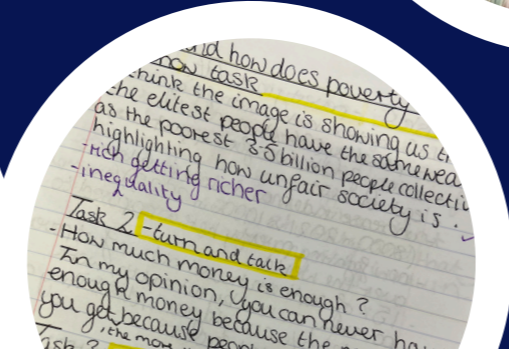 and how does poverty
now task
think the image is showing us th
the elitest people have the same wea
as the poorest 3.5 billion people collectiv
highlighting how unfair society is.
-rich getting richer
-inequality
Task 2 -turn and talk
-How much money is enough?
In my opinion, you can never ha
enough money because the
you get because peop
the more
Task